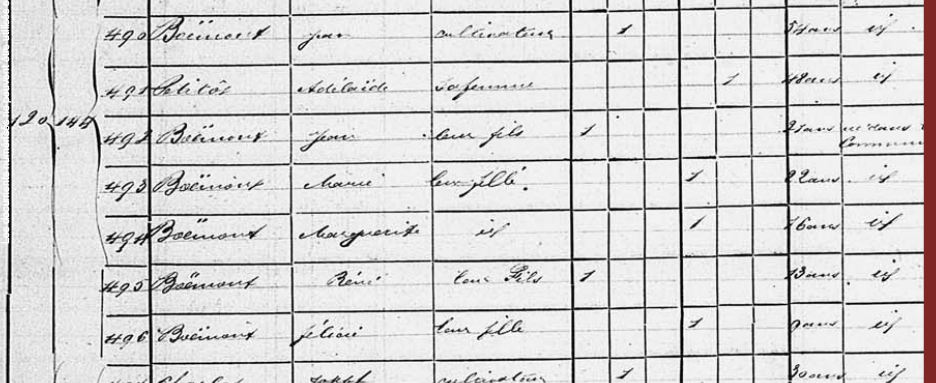 490 Boëmont Jean cultivateur 1 54 ans id
491 Petitôt Adélaïde sa femme 1 48 ans id
120 144
492 Boëmont Jean leur fils 1 27 ans né dans
Commun
493 Boëmont Marie leur fille. 1 22 ans id
494 Boëmont Marguerite id 1 16 ans id
495 Boëmont Réné leur Fils 1 13 ans id
496 Boëmont félicie leur fille 1 9 ans id
Joseph cultivateur 1 30 ans id